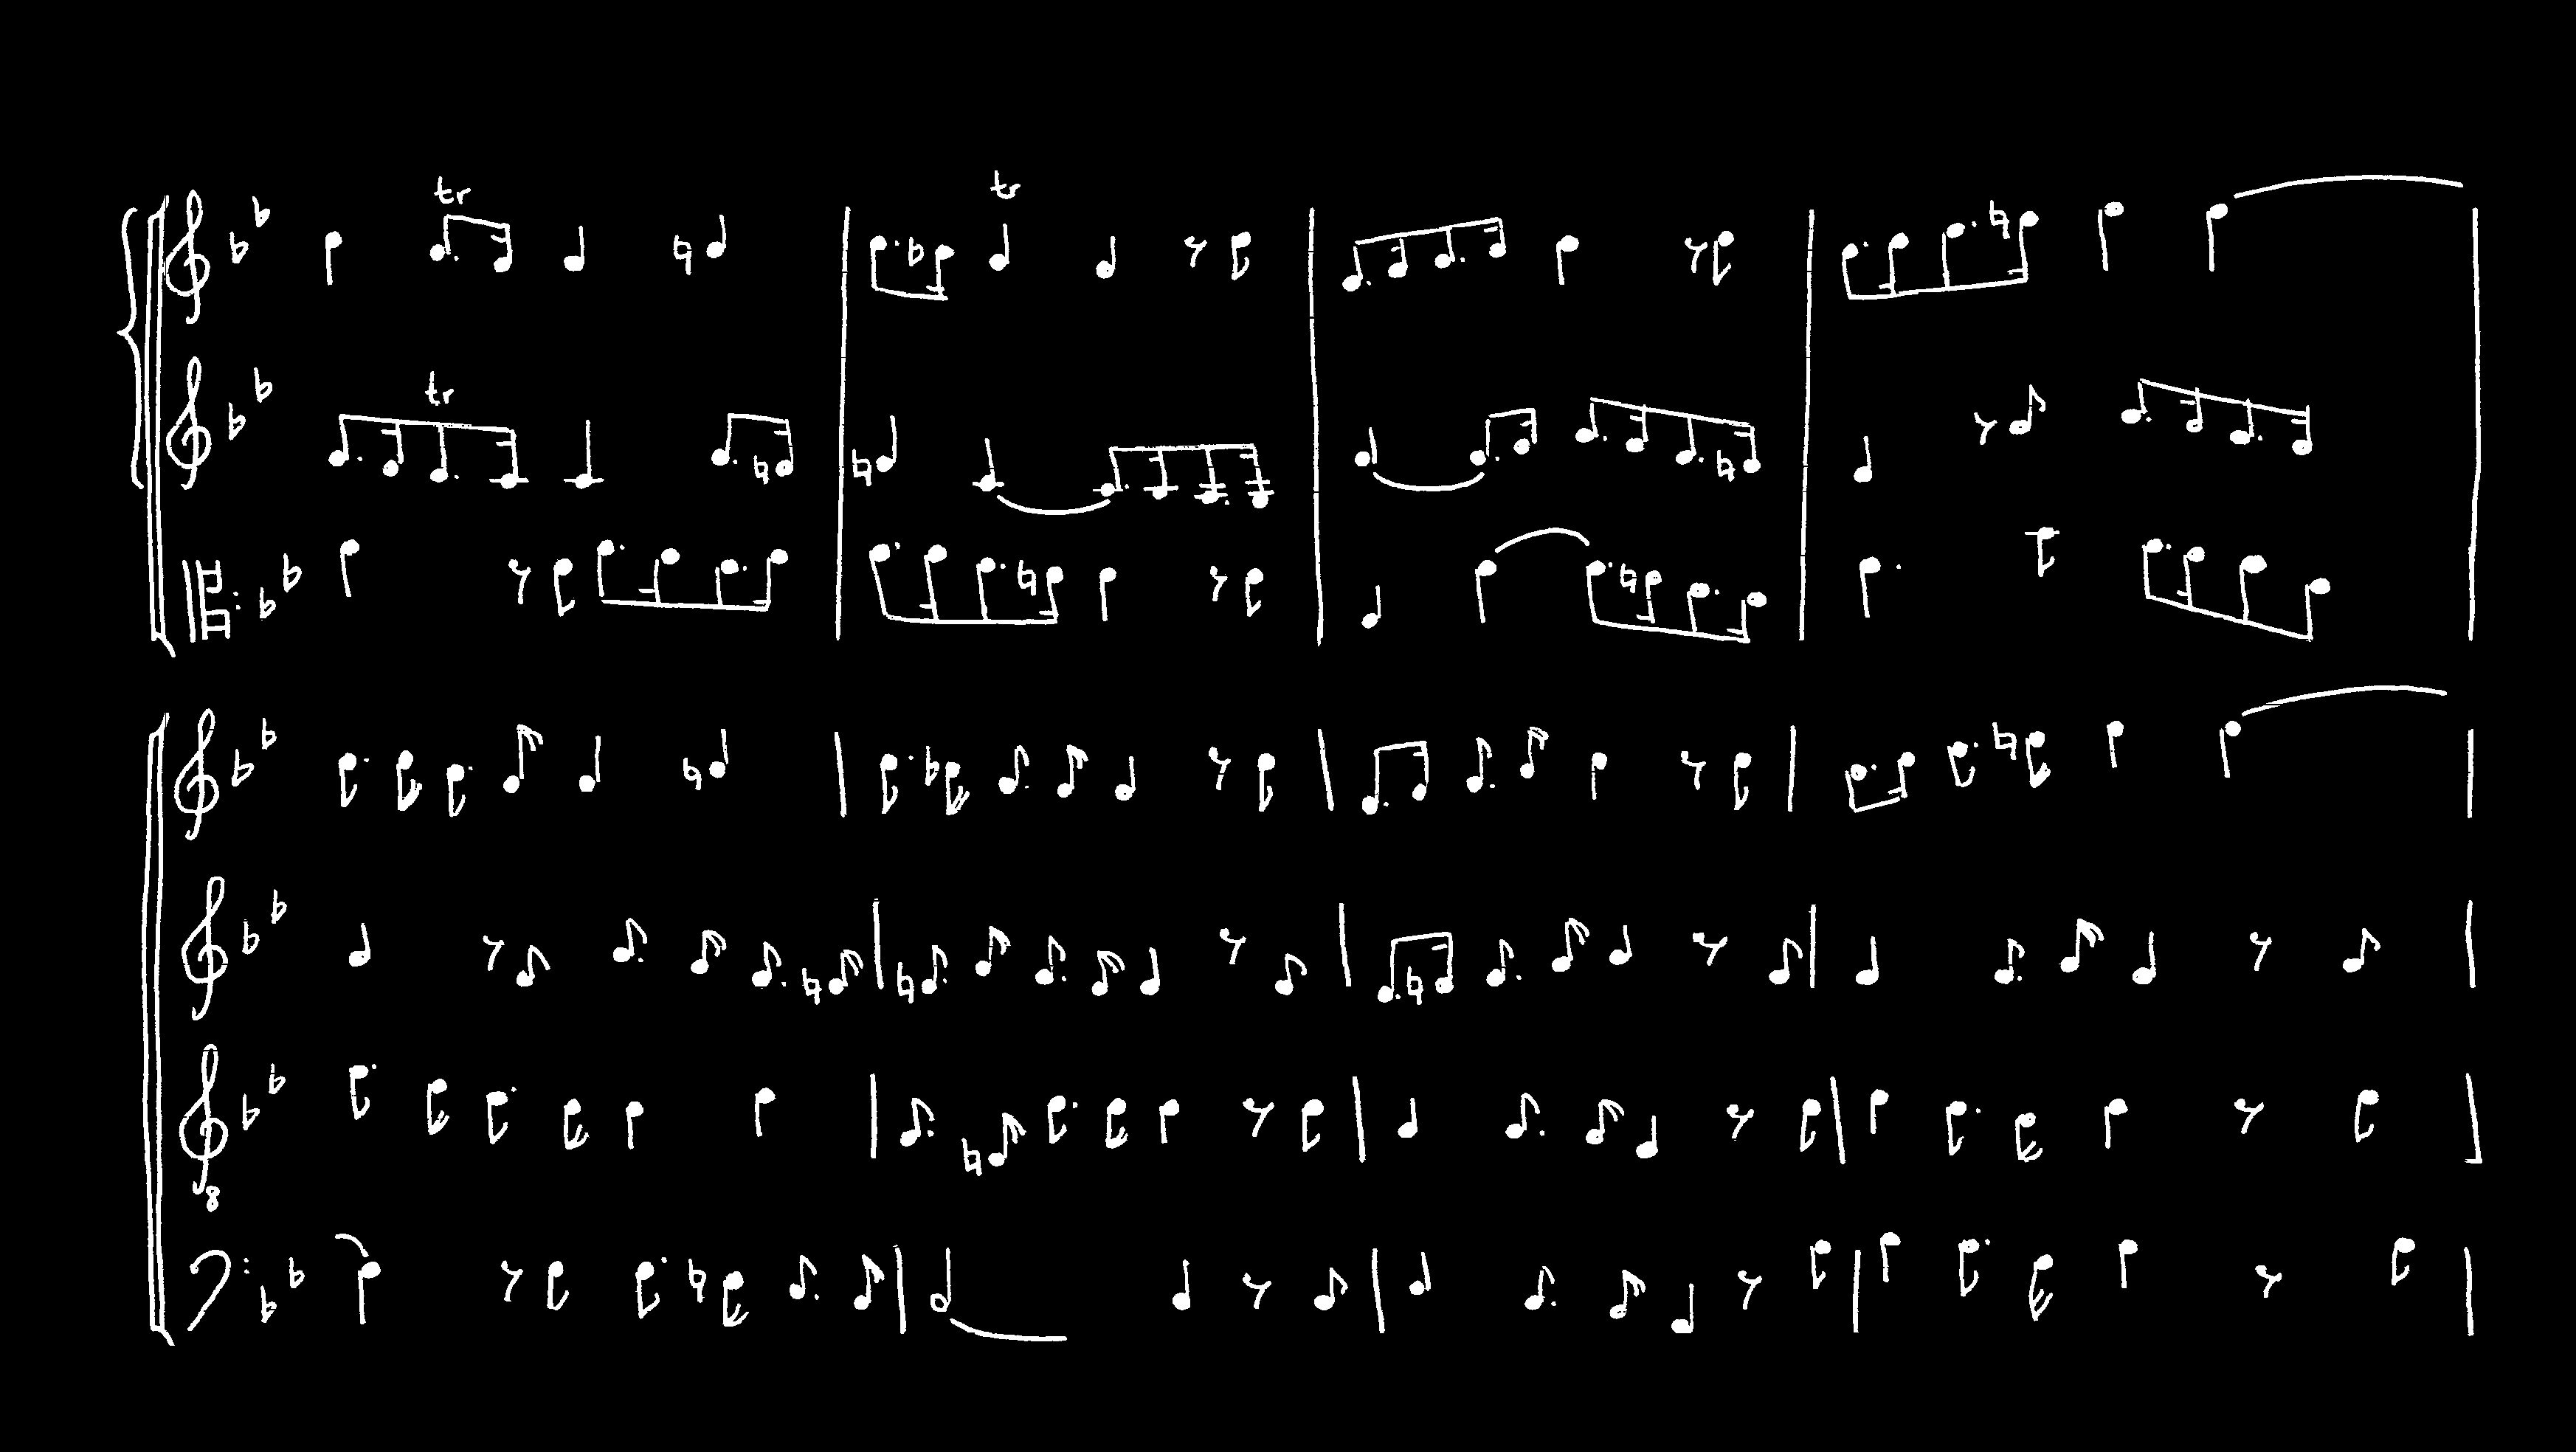 tr tr
tr
8